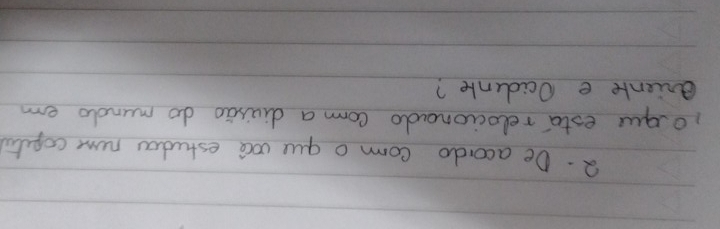 2 - De acordo com o que você estudou nesse
, o que está relacionado com a divisão do mundo em
Oriente e Ocidente?